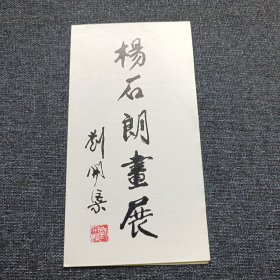 楊石朗畫展
劉開渠